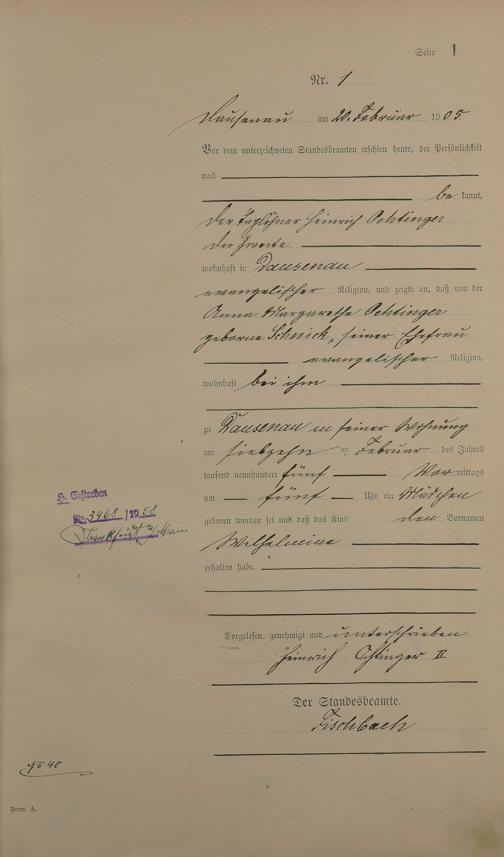 Seite 1
Nr. 1
Dausenau am 20. Februar 1905.
Vor dem unterzeichneten Standesbeamten erschien heute, der Persönlichkeit
nach
bekannt,
der Taglöhner Heinrich Ochtinger
der Zweite
wohnhaft in Dausenau
evangelischer Religion, und zeigte an, daß von der
Anna Margarethe Ochtinger
geborne, seiner Ehefrau
evangelischer Religion,
wohnhaft bei ihm
zu Dausenau in seiner Wohnung
am siebzehn ten Februar des Jahres
tausend neunhundert fünf Vor mittags
um fünf Uhr ein Mädchen
geboren worden sei und daß das Kind den Vornamen
Wilhelmine
erhalten habe.
H. Gestorben
Nr. 3468 / 1958
Frankfurt / Main
Vorgelesen, genehmigt und unterschrieben
Heinrich Ochtinger II
Der Standesbeamte.
Fischbach
No 40
Form. A.